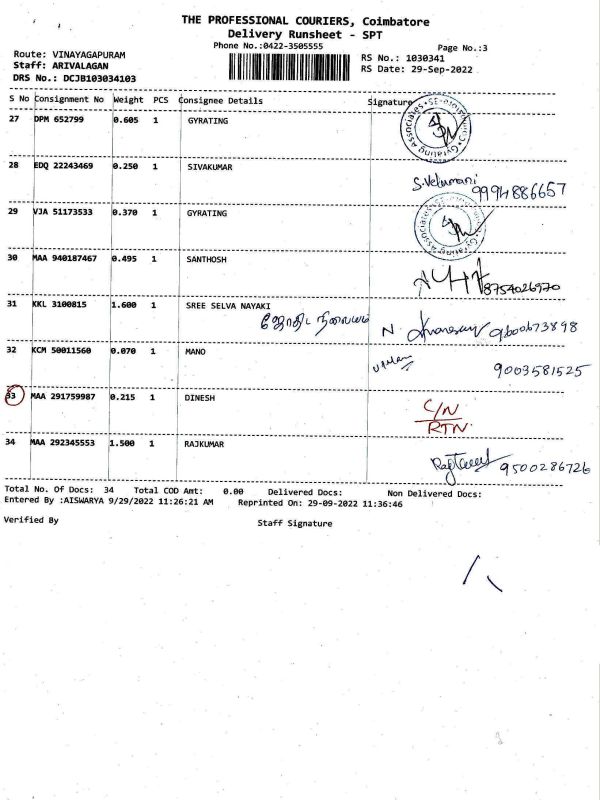 THE PROFESSIONAL COURIERS, Coimbatore
Delivery Runsheet - SPT
Phone No.:0422-3505555
Page No.:3
Route: VINAYAGAPURAM
Staff: ARIVALAGAN
DRS No.: DCJB103034103
RS No.: 1030341
RS Date: 29-Sep-2022
S No Consignment No Weight PCS Consignee Details Signature
27 DPM 652799 0.605 1 GYRATING
Gyrating Associates
28 EDQ 22243469 0.250 1 SIVAKUMAR
S.Velumani 9994886657
29 VJA 51173533 0.370 1 GYRATING
Gyrating Associates
30 MAA 940187467 0.495 1 SANTHOSH
8754026970
31 KKL 3100815 1.600 1 SREE SELVA NAYAKI
ஜோதிட நிலையம் N. 9600673898
32 KCM 50011560 0.070 1 MANO
9003581525
33 MAA 291759987 0.215 1 DINESH
C/N
RTN
34 MAA 292345553 1.500 1 RAJKUMAR
9500286726
Total No. Of Docs: 34 Total COD Amt: 0.00 Delivered Docs: Non Delivered Docs:
Entered By :AISWARYA 9/29/2022 11:26:21 AM Reprinted On: 29-09-2022 11:36:46
Verified By Staff Signature